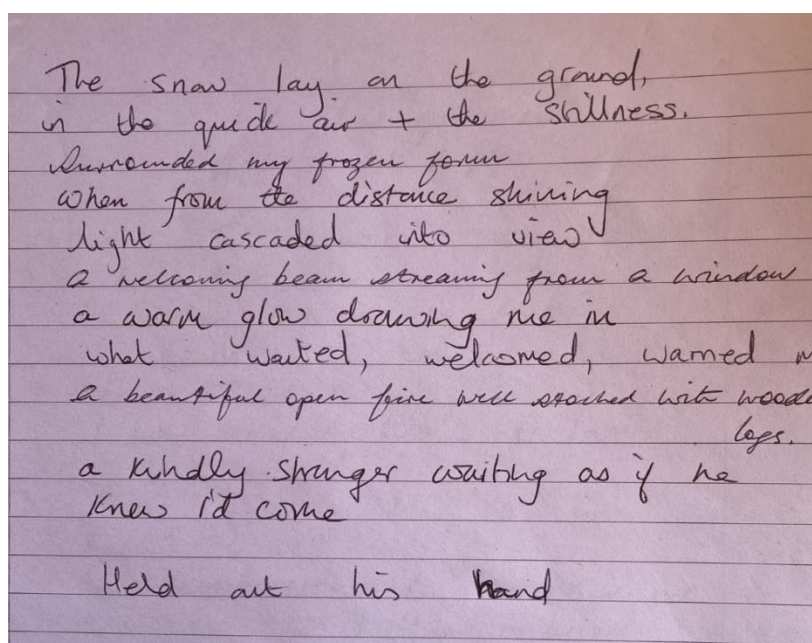 The snow lay on the ground,
in the quick air + the stillness.
Surrounded my frozen form
when from the distance shining
light cascaded into view
a welcoming beam streaming from a window
a warm glow drawing me in
what waited, welcomed, warned
a beautiful open fire well stocked with
logs.
a kindly stranger waiting as if he
knew i'd come
Held out his hand